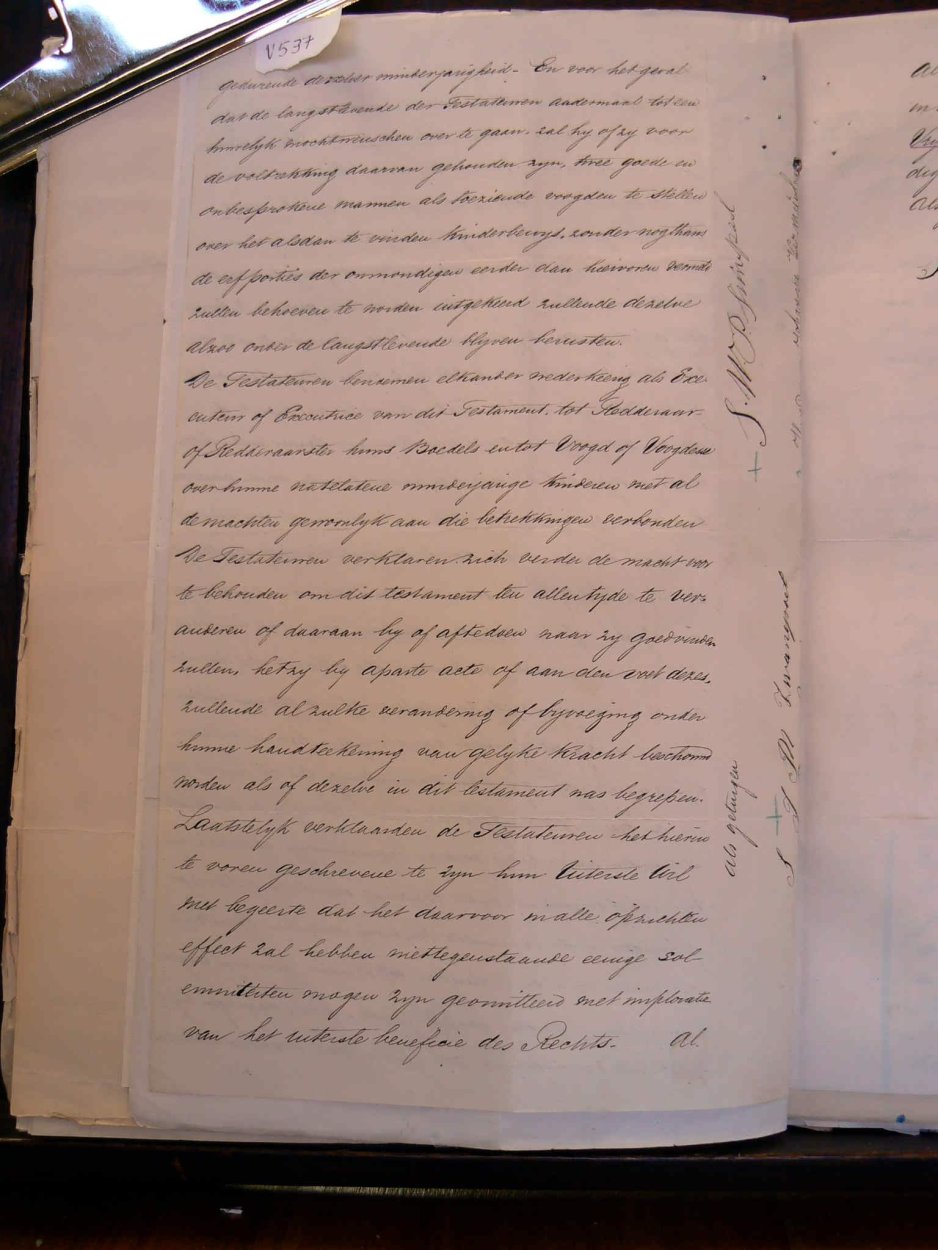 V537
gedurende derzelver minderjarigheid. En voor het geval
dat de langstlevende der Testateuren andermaal tot een
huwelyk mocht wenschen over te gaan, zal hy of zy voor
de voltrekking daarvan gehouden zyn, twee goede en
onbesprokene mannen als toeziende voogden te stellen
over het alsdan te vinden kinderbewys, zonder nogthans
de erfporties der onmondigen eerder dan hiervoren vermeld
zullen behoeven te worden uitgekeerd zullende dezelve
alzoo onder de langstlevende blyven berusten.
De Testateuren benoemen elkander wederkeerig als Exe-
cuteur of Executrice van dit Testament, tot Redderaar
of Redderaarster huns Boedels en tot Voogd of Voogdesse
over hunne natelatene minderjarige kinderen met al
de machten gewoonlyk aan die betrekkingen verbonden
De Testateuren verklaren zich verder de macht voor
te behouden om dit testament ten allen tyde te ver-
anderen of daaraan by of aftedoen naar zy goedvinden
zullen, hetzy by aparte acte of aan den voet dezes,
zullende al zulke verandering of byvoeging onder
hunne handteekening van gelyke kracht beschouwd
worden als of dezelve in dit testament was begrepen.
Laatstelyk verklaarden de Testateuren het hierin
te voren geschrevene te zyn hun Uiterste Wil
met begeerte dat het daarvoor in alle opzichten
effect zal hebben niettegenstaande eenige sol-
emniteiten mogen zyn geomitteerd met imploratie
van het uiterste beneficie des Rechts. Al.
als getuigen